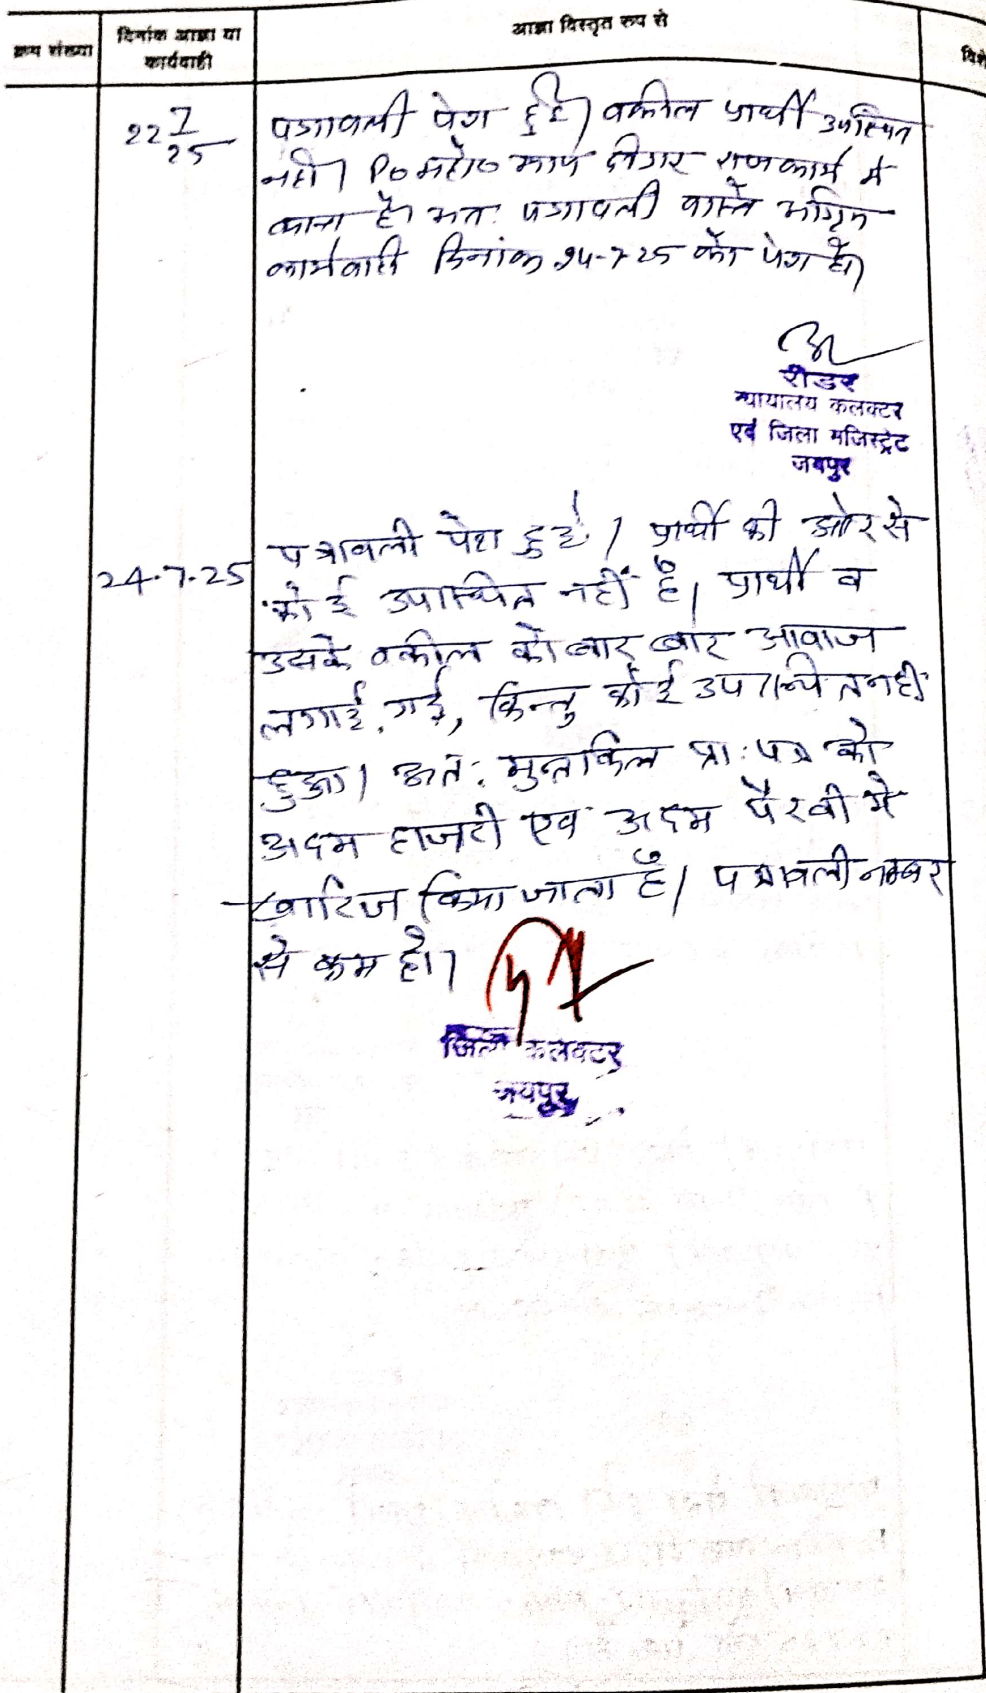 क्रम संख्या
दिनांक आज्ञा या
कार्यवाही
आज्ञा विस्तृत रुप से
विशे
22 7/25
पत्रावली पेश हुई। वकील प्रार्थी उपस्थित
नही। P० महो० अन्य राजकार्य मे
है। अतः पत्रावली वास्ते अग्रिम
कार्यवाही दिनांक 24-7-25 को पेश हो।
रीडर
न्यायालय कलक्टर
एवं जिला मजिस्ट्रेट
जयपुर
24.7.25
पत्रावली पेश हुई। प्रार्थी की ओर से
कोई उपस्थित नहीं है। प्रार्थी व
उसके वकील को बार बार आवाज
लगाई गई, किन्तु कोई उपस्थित नहीं
हुआ। अतः मुन्तकिल प्रा: पत्र को
अदम हाजरी एवं अदम पैरवी मे
खारिज किया जाता है। पत्रावली नम्बर
से कम हो।
जिला कलक्टर
जयपुर